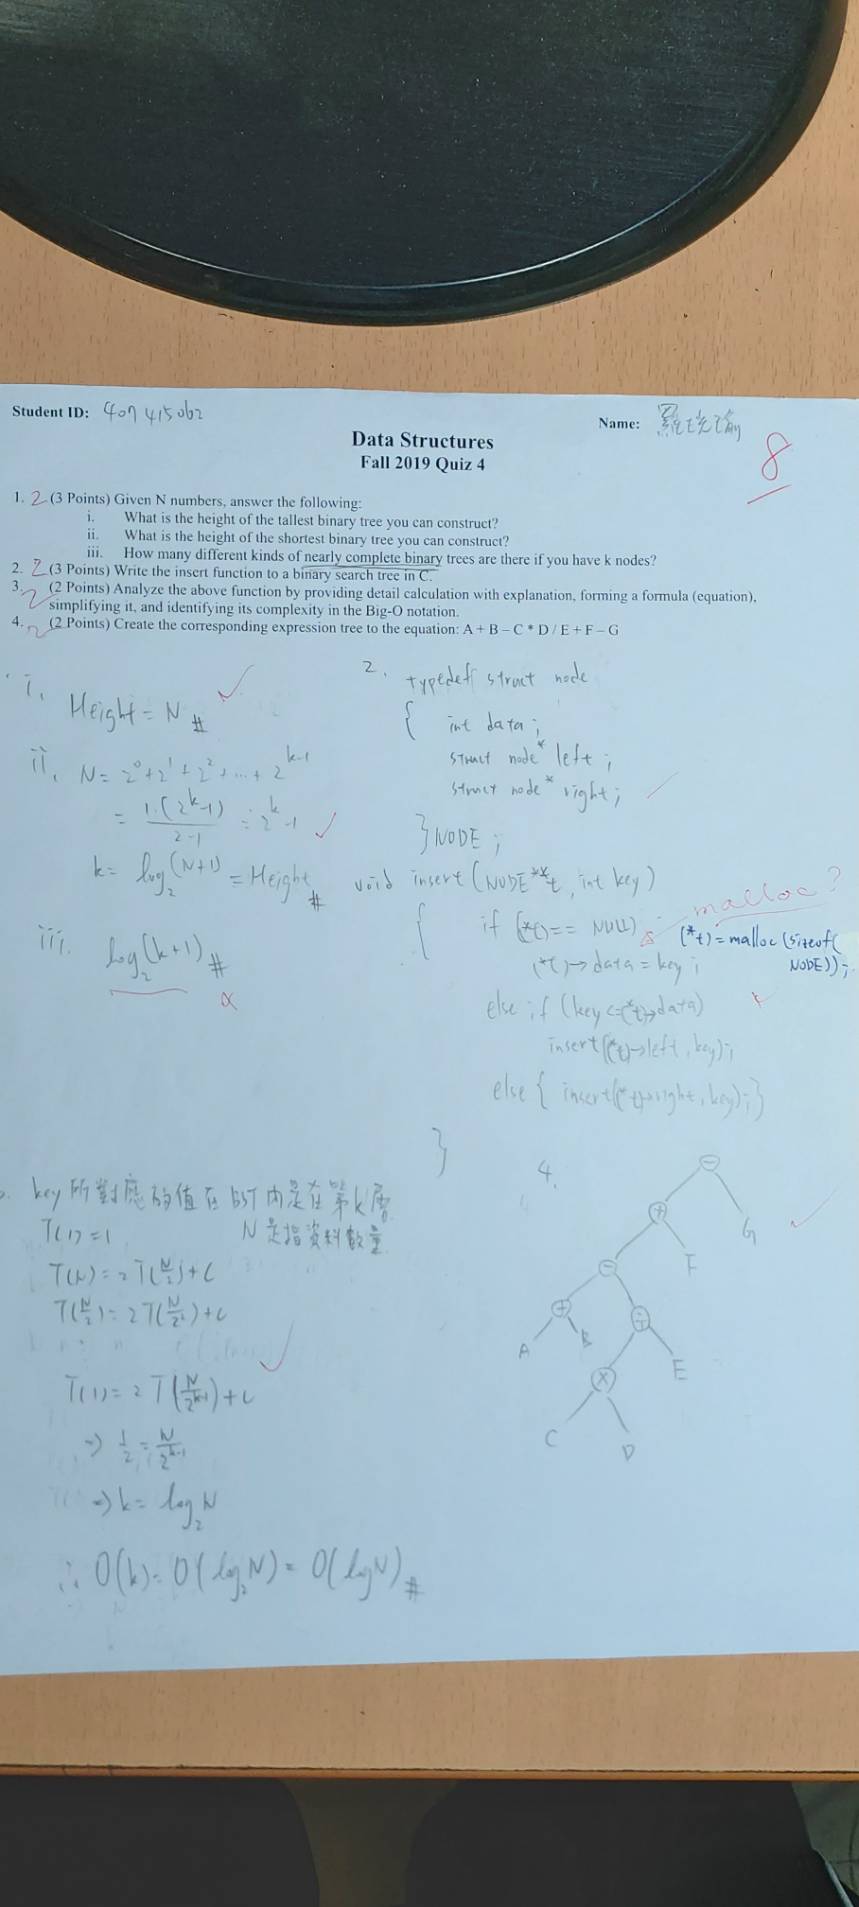 Student ID: 407415062
Name:
8
Data Structures
Fall 2019 Quiz 4
1. 2 (3 Points) Given N numbers, answer the following:
i. What is the height of the tallest binary tree you can construct?
ii. What is the height of the shortest binary tree you can construct?
iii. How many different kinds of nearly complete binary trees are there if you have k nodes?
2. 2 (3 Points) Write the insert function to a binary search tree in C.
3. 2 (2 Points) Analyze the above function by providing detail calculation with explanation, forming a formula (equation),
simplifying it, and identifying its complexity in the Big-O notation.
4. 2 (2 Points) Create the corresponding expression tree to the equation: A + B – C * D / E + F – G
i. Height = N #
ii. N = 2^0 + 2^1 + 2^2 + ... + 2^(k-1)
= 1·(2^k-1) / 2-1 = 2^k-1
k = log_2(N+1) = Height #
iii. log_2(k+1) #
2. typedeff struct node
{ int data;
struct node* left;
struct node* right;
} NODE;
void insert (NODE** t, int key)
malloc?
{ if (*t) == NULL) (*t) = malloc (sizeof(
NODE));
(*t)->data = key;
else if (key <= (*t)->data)
insert((*t)->left, key);
else { insert((*t)->right, key);}
}
key 所對應的值在 BST 內是在第 k 層
T(1) = 1 N 是指資料數量
T(N) = 2T(N/2) + C
T(N/2) = 2T(N/2^2) + C
T(1) = 2T(N/2^(k-1)) + C
=> 1/2 = N/2^(k-1)
=> k = log_2 N
∴ O(k) = O(log_2 N) = O(log N) #
4.
−
+ G
− F
+ ÷
A B × E
C D